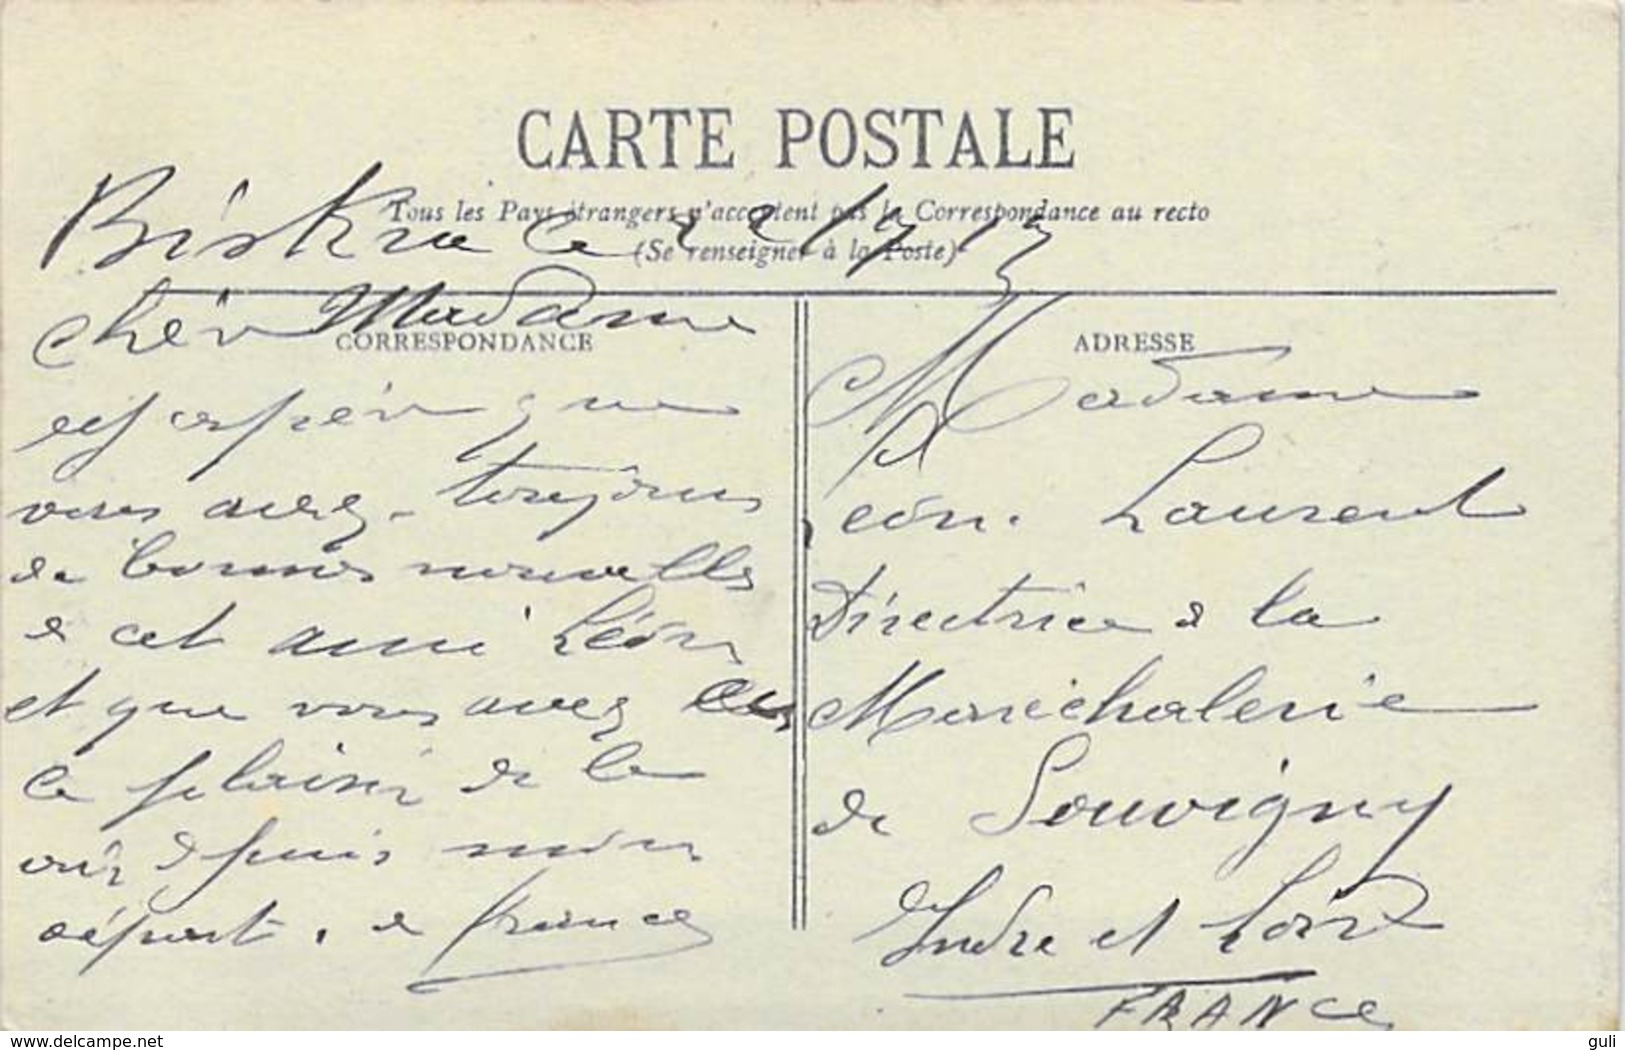 CARTE POSTALE
Tous les Pays étrangers n'acceptent pas la Correspondance au recto
(Se renseigner à la Poste)
Biskra le 22/7 13
CORRESPONDANCE
Chèr Madame
espèr que
vous avez toujours
de bonnes nouvelles
de cet ami Léon
et que vous avez eus
le plaisir de le
voir depuis mon
départ. de france
ADRESSE
Madame
Léon. Laurent
Directrice de la
Marèchalerie
de Souvigny
Indre et Loire
FRANCe
delcampe.net
guli